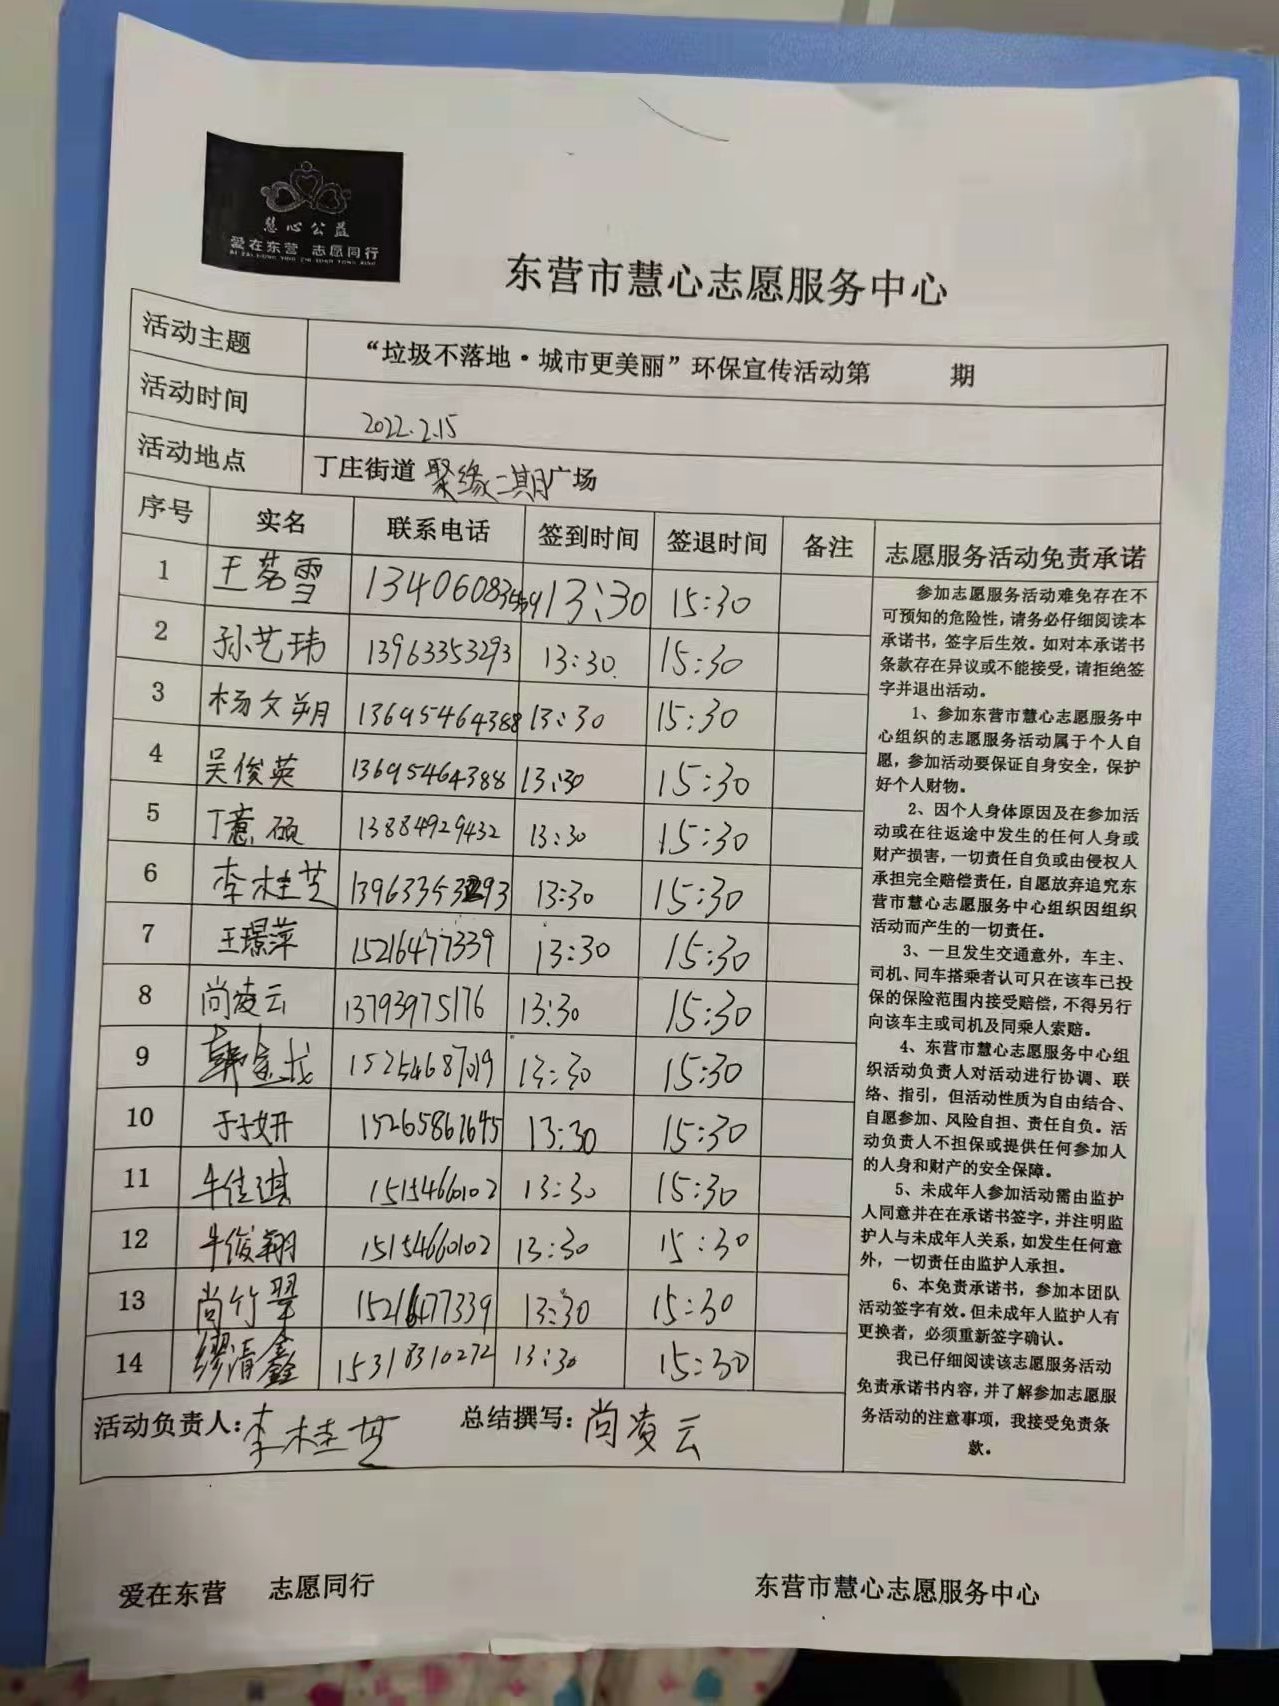 慧心公益
爱在东营 志愿同行
AI ZAI DONG YING ZHI YUAN TONG XING
东营市慧心志愿服务中心
活动主题 “垃圾不落地·城市更美丽”环保宣传活动第 期
活动时间 2022.2.15
活动地点 丁庄街道 聚缘二期广场
序号 实名 联系电话 签到时间 签退时间 备注 志愿服务活动免责承诺
1 王茗雪 13:30 15:30
2 孙艺玮 13963353293 13:30 15:30
3 杨文朔 13695464388 13:30 15:30
4 吴俊英 13695464388 13:30 15:30
5 丁薏硕 13884929432 13:30 15:30
6 李桂芝 13963353293 13:30 15:30
7 王璟萍 15216477339 13:30 15:30
8 尚凌云 13793975176 13:30 15:30
9 13:30 15:30
10 于子妍 15265867645 13:30 15:30
11 牛佳琪 15154660102 13:30 15:30
12 牛俊翔 15154660102 13:30 15:30
13 尚竹翠 15216477339 13:30 15:30
14 缪清鑫 15318310272 13:30 15:30
活动负责人：李桂芝 总结撰写：尚凌云
参加志愿服务活动难免存在不
可预知的危险性，请务必仔细阅读本
承诺书，签字后生效。如对本承诺书
条款存在异议或不能接受，请拒绝签
字并退出活动。
1、参加东营市慧心志愿服务中
心组织的志愿服务活动属于个人自
愿，参加活动要保证自身安全，保护
好个人财物。
2、因个人身体原因及在参加活
动或在往返途中发生的任何人身或
财产损害，一切责任自负或由侵权人
承担完全赔偿责任，自愿放弃追究东
营市慧心志愿服务中心组织因组织
活动而产生的一切责任。
3、一旦发生交通意外，车主、
司机、同车搭乘者认可只在该车已投
保的保险范围内接受赔偿，不得另行
向该车主或司机及同乘人索赔。
4、东营市慧心志愿服务中心组
织活动负责人对活动进行协调、联
络、指引，但活动性质为自由结合、
自愿参加、风险自担、责任自负。活
动负责人不担保或提供任何参加人
的人身和财产的安全保障。
5、未成年人参加活动需由监护
人同意并在在承诺书签字，并注明监
护人与未成年人关系，如发生任何意
外，一切责任由监护人承担。
6、本免责承诺书，参加本团队
活动签字有效。但未成年人监护人有
更换者，必须重新签字确认。
我已仔细阅读该志愿服务活动
免责承诺书内容，并了解参加志愿服
务活动的注意事项，我接受免责条
款。
爱在东营 志愿同行 东营市慧心志愿服务中心